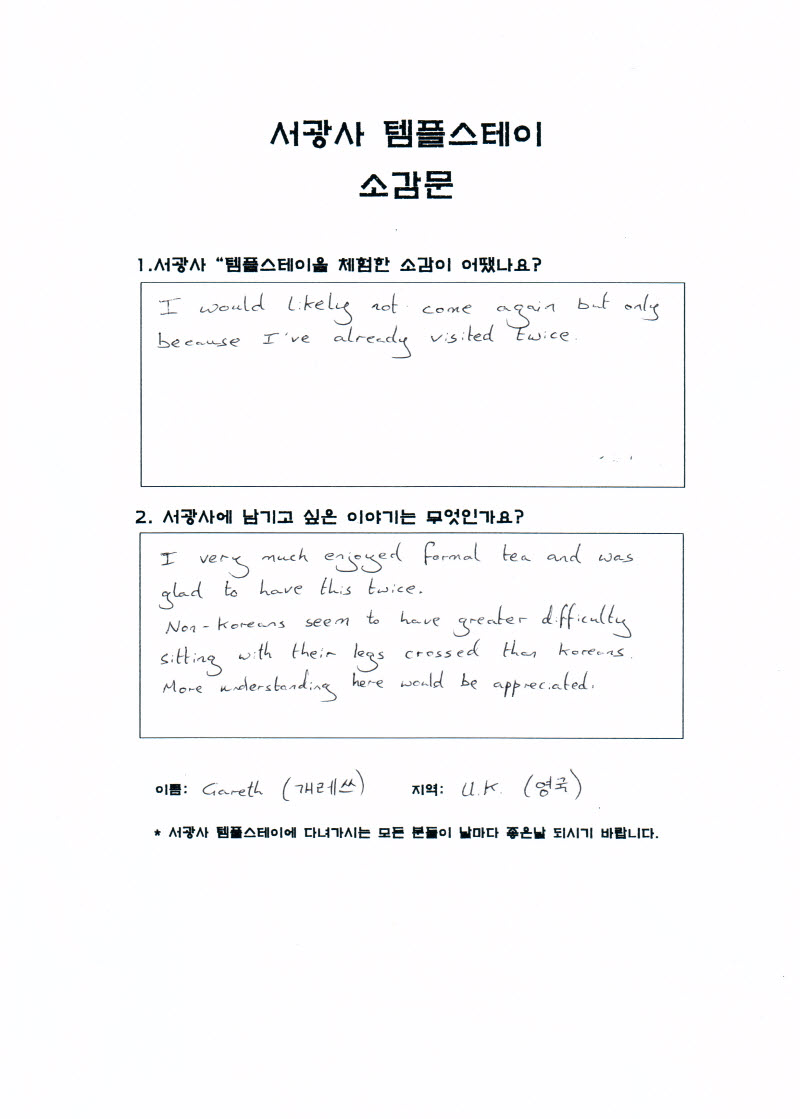 서광사 템플스테이
소감문
1.서광사 “템플스테이을 체험한 소감이 어땠나요?
I would likely not come again but only
because I've already visited twice.
2. 서광사에 남기고 싶은 이야기는 무엇인가요?
I very much enjoyed formal tea and was
glad to have this twice.
Non-Koreans seem to have greater difficulty
sitting with their legs crossed than Koreans.
More understanding here would be appreciated.
이름: Gareth (개레쓰) 지역: U.K. (영국)
* 서광사 템플스테이에 다녀가시는 모든 분들이 날마다 좋은날 되시기 바랍니다.